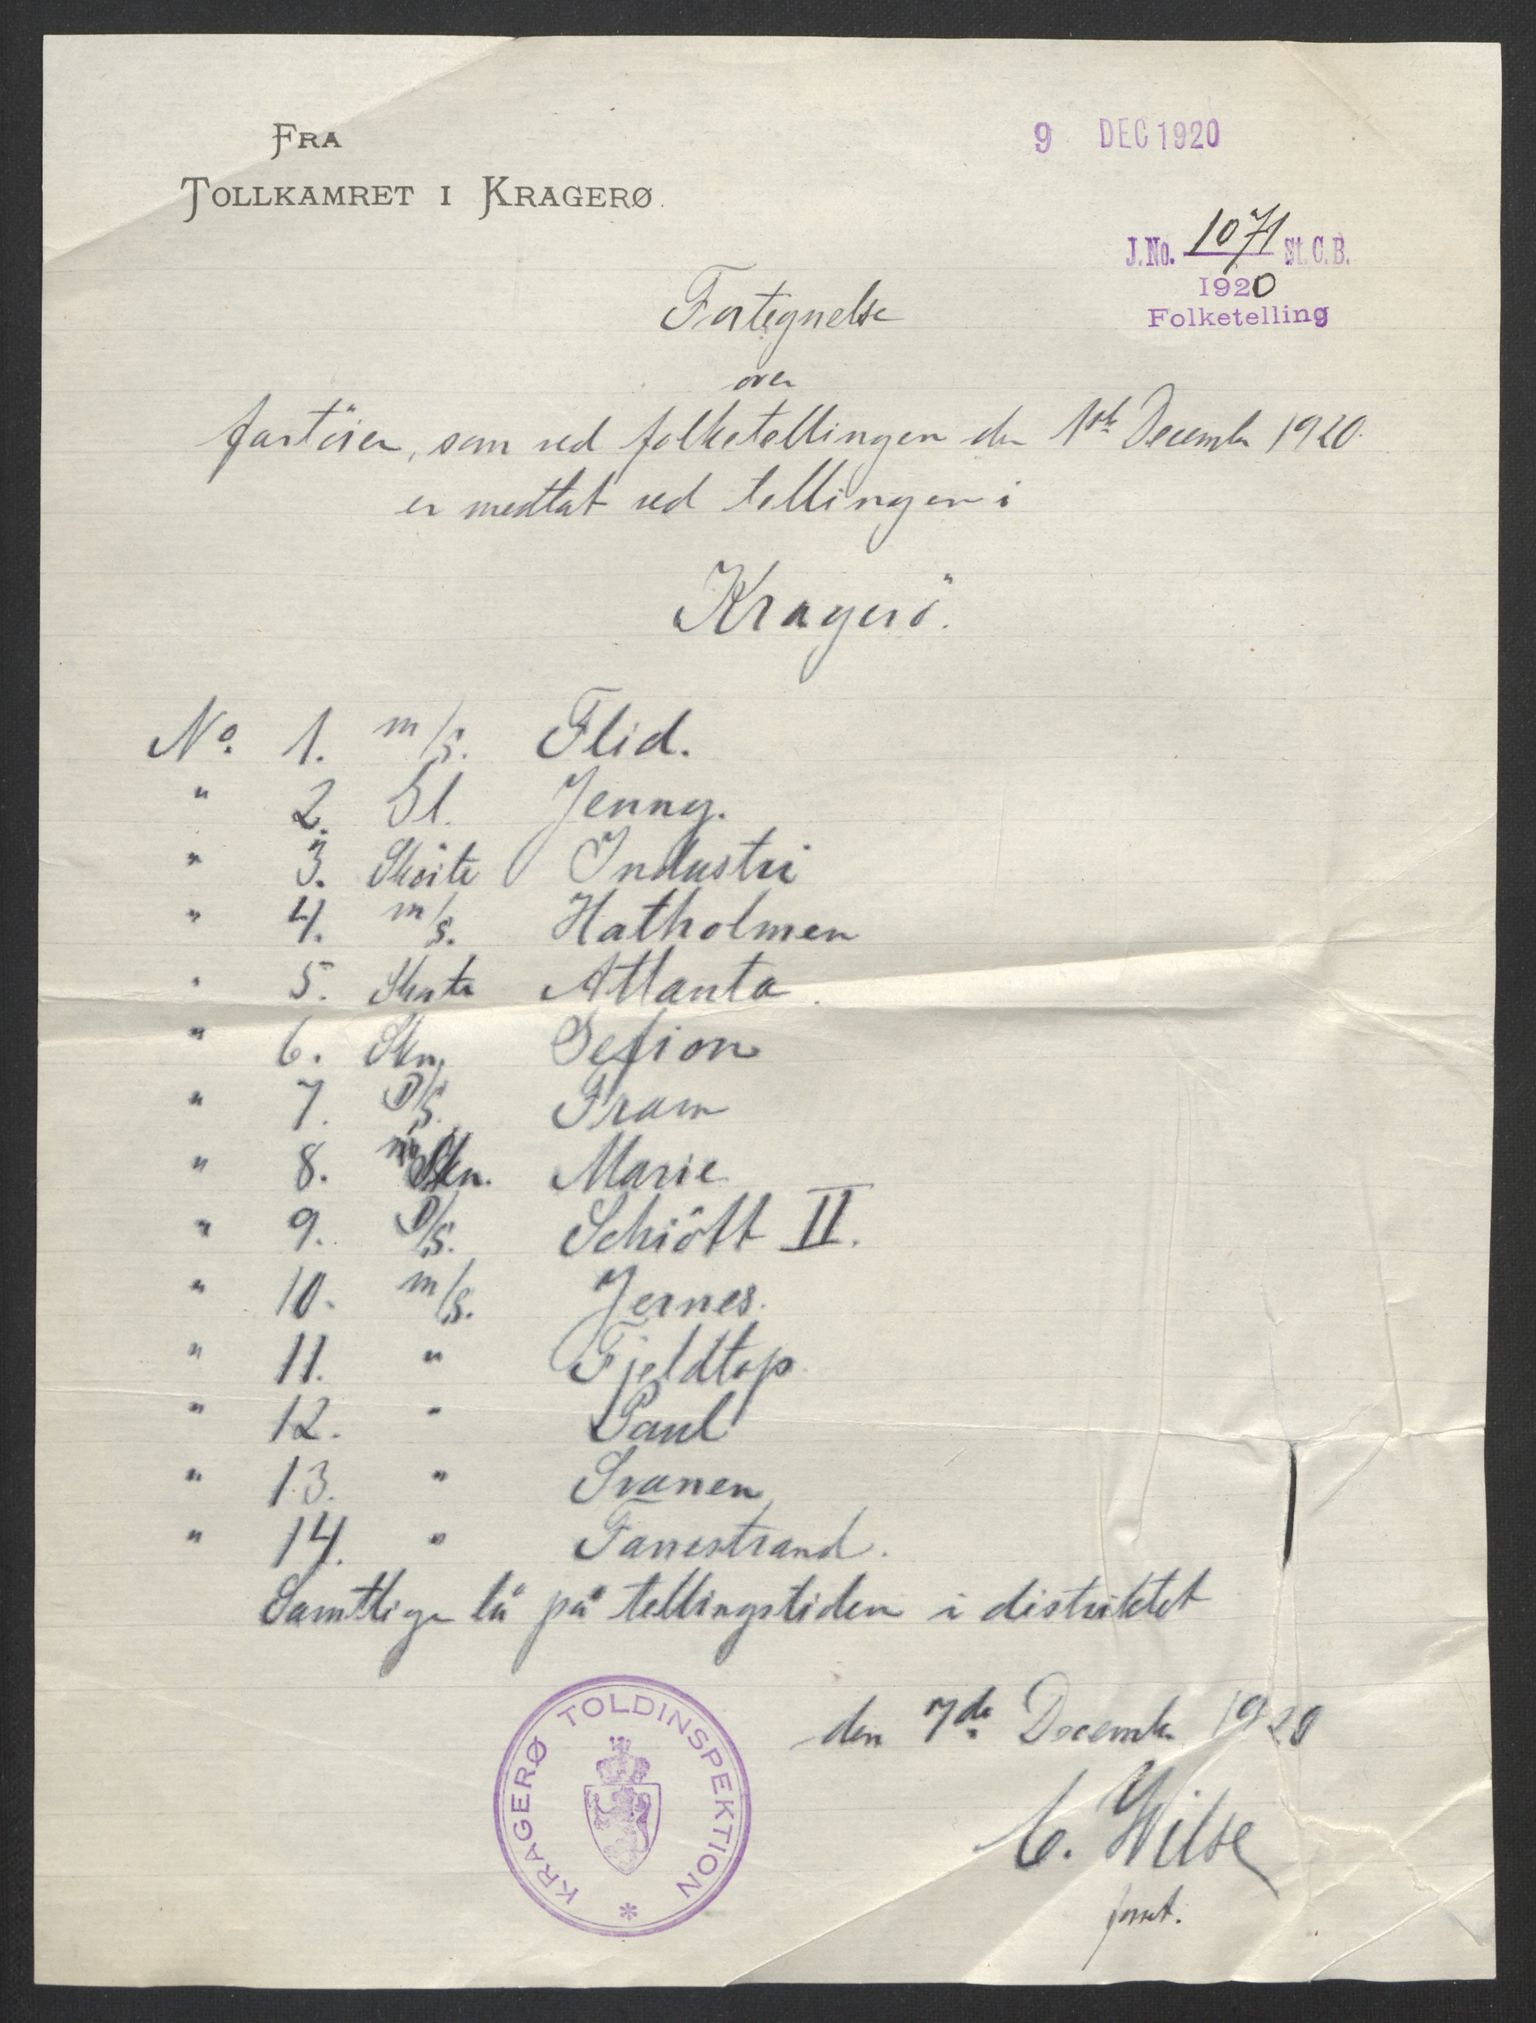 FRA
TOLLKAMRET I KRAGERØ.
9 DEC 1920
J.No. 1071 St. C. B.
1920
Folketelling
Fortegnelse
over
fartöier, som ved folketellingen den 1ste December 1920
er medtat ved tellingen i
Kragerö.
No. 1. m/s. Flid.
" 2. Sl. Jenny.
" 3. Sköite Industri
" 4. m/s. Hatholmen
" 5. Atlanta.
" 6. Skn. Gefion
" 7. D/S. Fram
" 8. Skn. Marie
" 9. D/S. Schiött II.
" 10. m/s. Jernes.
" 11. " Fjeldtop
" 12. " Paul
" 13. " Svanen
" 14. " Fanestrand.
Samtlige lå på tellingstiden i distriktet
den 7de December 1920
C. Wilse
KRAGERØ TOLDINSPEKTION *